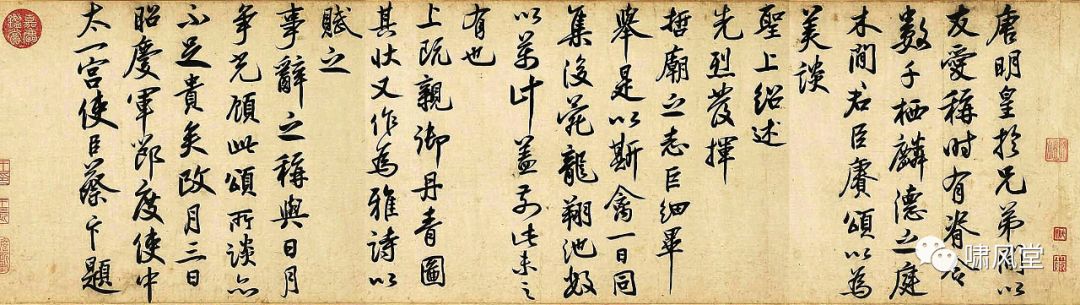 唐明皇於兄弟間以
友愛稱時有脊令
數千栖麟德之庭
木間君臣賡頌以為
美談
聖上紹述
先烈發揮
哲廟之志巨細畢
舉是以斯禽一日同
集後苑龍翔池數
以萬計蓋前此未之
有也
上既親御丹青圖
其狀又作為雅詩以
賦之
事辭之稱與日月
爭光顧此頌所談亦
不足貴矣政月三日
昭慶軍節度使中
太一宮使臣蔡卞題
嘉慶鑑賞
啸风堂